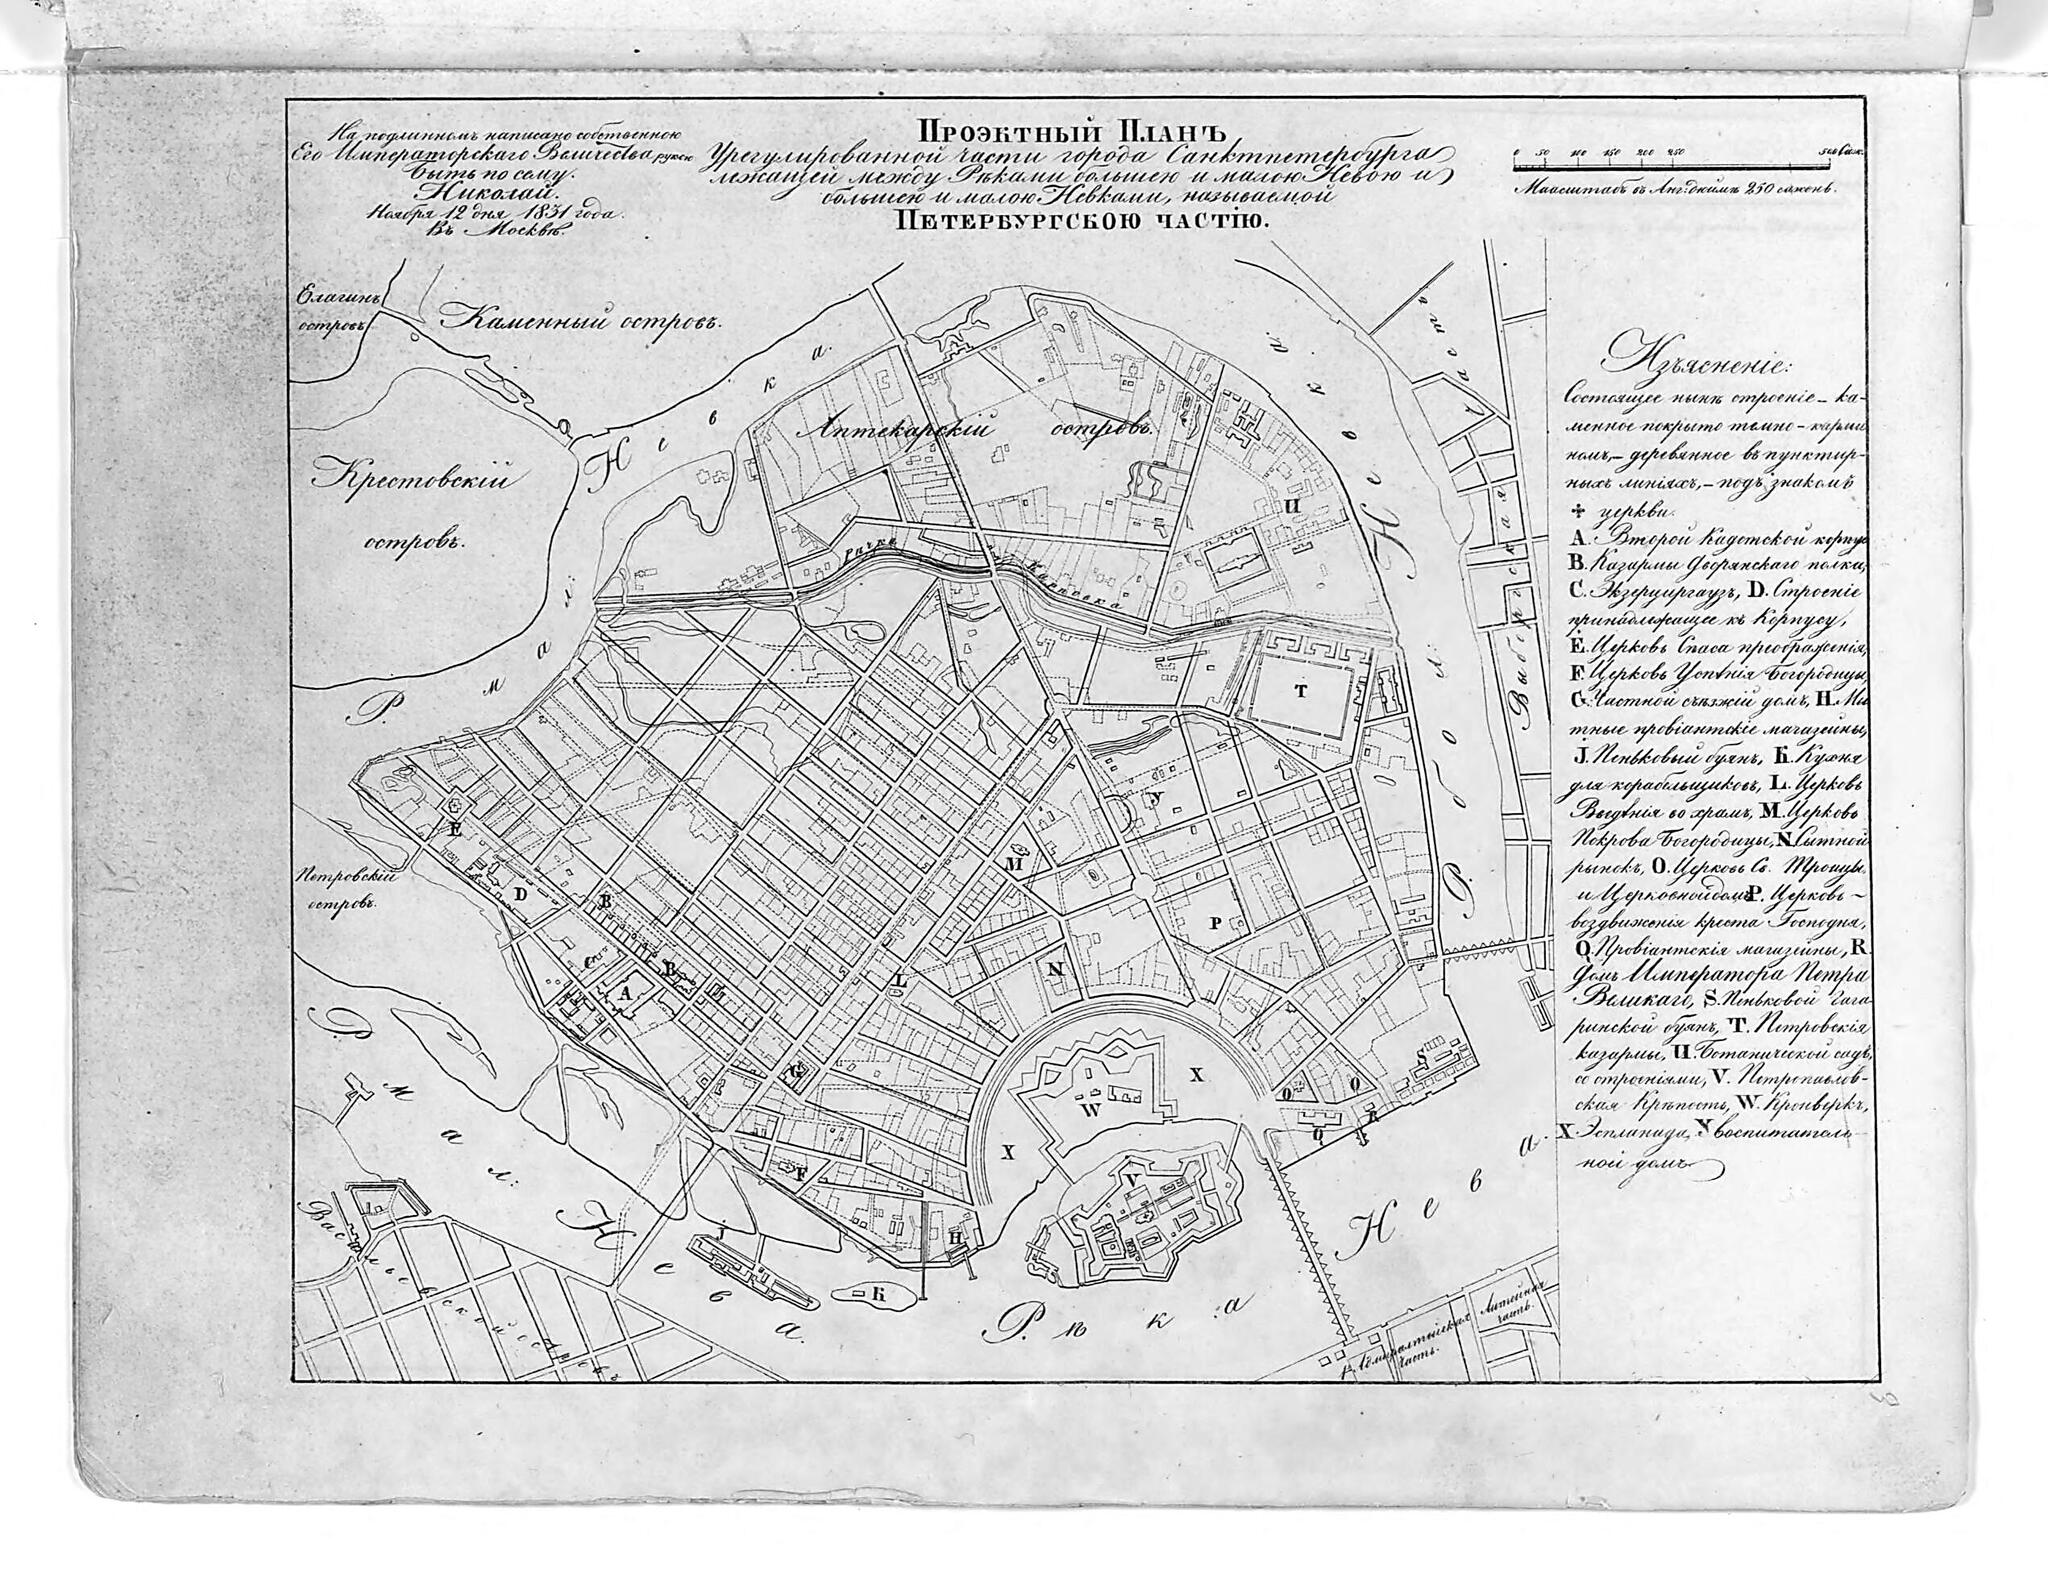 На подлинномъ написано собственною
Его Императорскаго Величества рукою
Быть по сему.
Николай.
Ноября 12 дня 1831 года.
Въ Москвѣ.
ПРОЭКТНЫЙ ПЛАНЪ
Урегулированной части города Санктпетербурга
лежащей между Рѣками большею и малою Невою и
большею и малою Невками, называемой
ПЕТЕРБУРГСКОЮ ЧАСТІЮ.
0 50 100 150 200 250 500 Саж.
Маасштабъ въ Анг: дюймѣ 250 саженъ.
Елагинъ
островъ
Каменный островъ.
Крестовскій
островъ.
Аптекарскій островъ.
Рѣчка Карповка
Р. мал: Невка.
Р. бол: Невка.
Выборгская часть
Петровскій
островъ.
Р. мал: Нева.
Васильевской островъ
Рѣка Нева.
Адмиралтейская
часть.
Литейная
часть.
A
B
B
C
D
E
F
G
H
J
K
L
M
N
O
O
P
Q
R
S
T
И
V
W
X
X
У
Изъясненіе:
Состоящее нынѣ строеніе – ка-
менное покрыто темно – карми
номъ, – деревянное въ пунктир-
ныхъ линіяхъ, – подъ знакомъ
✢ церкви.
A. Второй Кадетской корпусъ
B. Казармы Дворянскаго полка,
C. Экзерциргаузъ, D. Строеніе
принадлежащее къ Корпусу,
E. Церковь Спаса преображенія,
F. Церковь Успѣнія Богородицы,
G. Частной съѣзжій домъ, H. Мы
тные провіантскіе магазейны,
J. Пеньковый буянъ, K. Кухня
для корабельщиковъ, L. Церковь
Введѣнія во храмъ, M. Церковь
Покрова Богородицы, N. Сытной
рынокъ, O. Церковь Св. Троицы
и Церковной домъ P. Церковь –
воздвиженія креста Господня,
Q. Провіантскія магазейны, R.
Домъ Императора Петра
Великаго, S. Пеньковой Гага
ринской буянъ, T. Петровскія
казармы, И. Ботанической садъ,
со строеніями, V. Петропавлов-
ская Крѣпость, W. Кронверкъ,
X. Эспланада, У воспитатель-
ной домъ